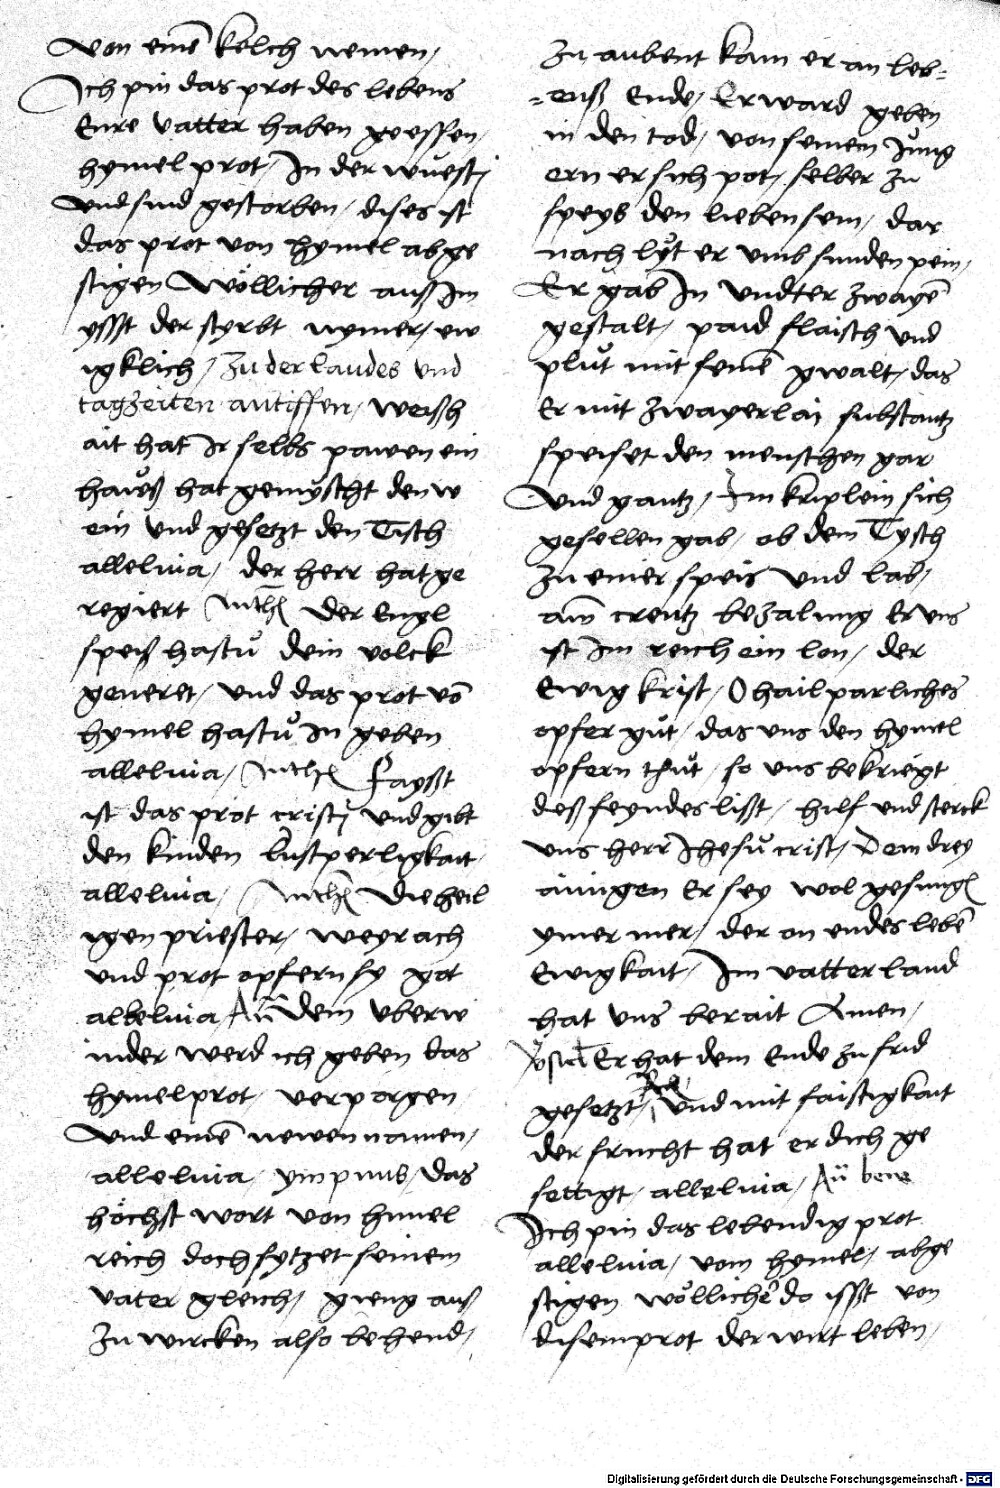 von einē kelch nemen /
Ich pin das prot des lebens
Eure vatter haben geessen /
hymel prot / In der wuestj
und sind gestorben / dises ist
das prot von hymel abge
stigen Wöllicher auß Im
ysst der styrbt nymer / ew
igklich / Zu der laudes und
tagzeiten antiffen / weißh
ait hat Ir selbs pawen ein
haůß hat gemyscht den w
ein und gesetzt den Tisch
alleluia / der herr hat ge
regiert der Engl
speiß hastů dein volck
generet / und das prot vō
hymel hastů In geben
alleluia / Faysst
ist das prot cristj und gibt
den kinden lustperligkait /
alleluia / die heil
igen priester / weyrach
und prot opfern sy got
alleluia Añ dem uberw
inder werd ich geben das
hymelprot / verporgen
und einē newen namen /
alleluia / ympnus / das
höchst wort von himel
reich doch sytzet seinem
vater gleich / gieng auß
Zu wircken also behend /
Zu aubent kam er an leb-
-enß Ende / Er ward geben
in den tod / von seinem Jŭng
ern er sich pot / selber zu
speyß den lieben sein / dar
nach lyt er umb sunden pein /
Er gab In undter zwayē
gestalt / paid flaisch und
plůt mit seinē gwalt / das
Er mit zwayerlaj substantz
speiset den menschen gar
und gantz / Im kriplein sich
gesellen gab / ob dem Tysch
zu einer speis und lab /
am creutz bezalung Er uns
ist Im reich ein lon / der
Ewig krist / O hailparliches
opfer gůt / das uns den hymel
opfern thůt / so uns bekriegt
deß feyndes lißt / hilf und sterck
uns herr Jhesů crist / Dem drey
ainigen Er sey wol
ymer mer / der on endes lebē
Ewigkait / Im vatterland
hat uns berait Amen /
Er hat dem Ende zu frid
gesetzt / und mit faistigkait
der frucht hat er dich ge
settigt / alleluia / Añ bene
Ich pin das lebendig prot
alleluia / vom hymel / abge
stigen wöllichē do isst von
disem prot der wirt leben /
Digitalisierung gefördert durch die Deutsche Forschungsgemeinschaft - DFG